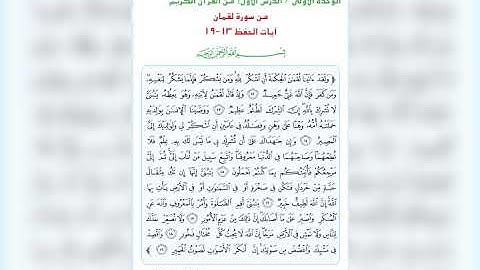 الوحدة الأولى / الدرس الأول: من القرآن الكريم
من سورة لقمان
آيات الحفظ ١٣-١٩
بِسْمِ اللَّهِ الرَّحْمَنِ الرَّحِيمِ
﴿ وَلَقَدْ ءَاتَيْنَا لُقْمَٰنَ ٱلْحِكْمَةَ أَنِ ٱشْكُرْ لِلَّهِ وَمَن يَشْكُرْ فَإِنَّمَا يَشْكُرُ لِنَفْسِهِۦ
وَمَن كَفَرَ فَإِنَّ ٱللَّهَ غَنِيٌّ حَمِيدٌ ﴿١٢﴾ وَإِذْ قَالَ لُقْمَٰنُ لِٱبْنِهِۦ وَهُوَ يَعِظُهُۥ يَٰبُنَيَّ
لَا تُشْرِكْ بِٱللَّهِ إِنَّ ٱلشِّرْكَ لَظُلْمٌ عَظِيمٌ ﴿١٣﴾ وَوَصَّيْنَا ٱلْإِنسَٰنَ بِوَٰلِدَيْهِ
حَمَلَتْهُ أُمُّهُۥ وَهْنًا عَلَىٰ وَهْنٍ وَفِصَٰلُهُۥ فِي عَامَيْنِ أَنِ ٱشْكُرْ لِي وَلِوَٰلِدَيْكَ إِلَيَّ
ٱلْمَصِيرُ ﴿١٤﴾ وَإِن جَٰهَدَاكَ عَلَىٰ أَن تُشْرِكَ بِي مَا لَيْسَ لَكَ بِهِۦ عِلْمٌ فَلَا
تُطِعْهُمَا وَصَاحِبْهُمَا فِي ٱلدُّنْيَا مَعْرُوفًا وَٱتَّبِعْ سَبِيلَ مَنْ أَنَابَ إِلَيَّ ثُمَّ إِلَيَّ
مَرْجِعُكُمْ فَأُنَبِّئُكُم بِمَا كُنتُمْ تَعْمَلُونَ ﴿١٥﴾ يَٰبُنَيَّ إِنَّهَا إِن تَكُ مِثْقَالَ
حَبَّةٍ مِّنْ خَرْدَلٍ فَتَكُن فِي صَخْرَةٍ أَوْ فِي ٱلسَّمَٰوَٰتِ أَوْ فِي ٱلْأَرْضِ يَأْتِ بِهَا
ٱللَّهُ إِنَّ ٱللَّهَ لَطِيفٌ خَبِيرٌ ﴿١٦﴾ يَٰبُنَيَّ أَقِمِ ٱلصَّلَوٰةَ وَأْمُرْ بِٱلْمَعْرُوفِ وَٱنْهَ عَنِ
ٱلْمُنكَرِ وَٱصْبِرْ عَلَىٰ مَا أَصَابَكَ إِنَّ ذَٰلِكَ مِنْ عَزْمِ ٱلْأُمُورِ ﴿١٧﴾ وَلَا تُصَعِّرْ خَدَّكَ
لِلنَّاسِ وَلَا تَمْشِ فِي ٱلْأَرْضِ مَرَحًا إِنَّ ٱللَّهَ لَا يُحِبُّ كُلَّ مُخْتَالٍ فَخُورٍ ﴿١٨﴾ وَٱقْصِدْ
فِي مَشْيِكَ وَٱغْضُضْ مِن صَوْتِكَ إِنَّ أَنكَرَ ٱلْأَصْوَٰتِ لَصَوْتُ ٱلْحَمِيرِ ﴿١٩﴾ ﴾